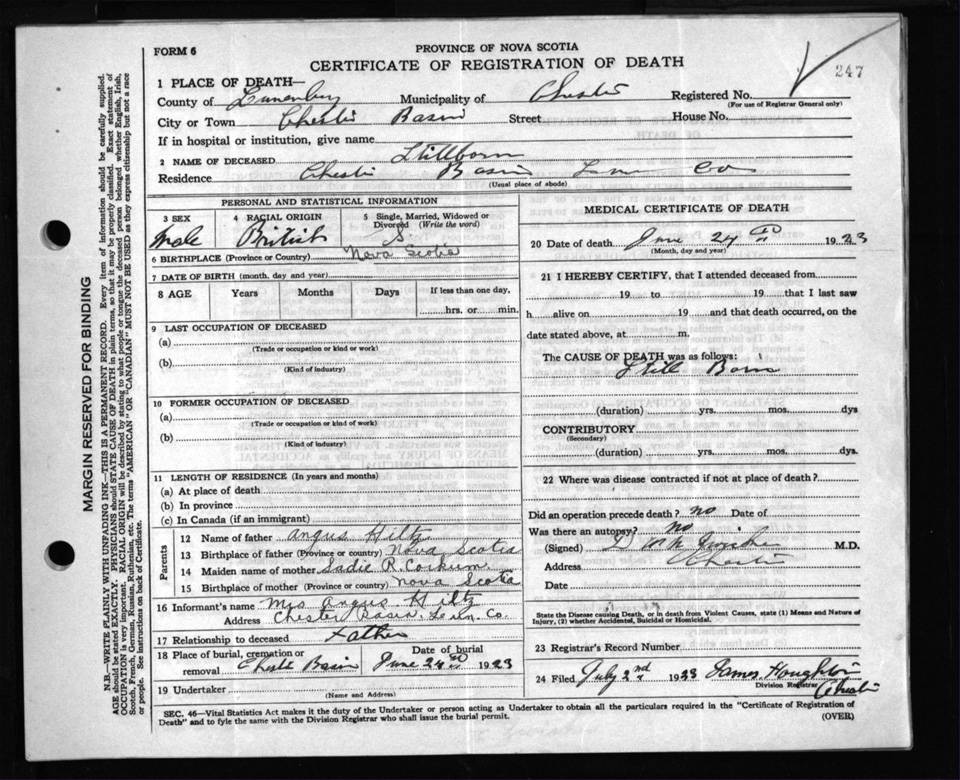 FORM 6
PROVINCE OF NOVA SCOTIA
CERTIFICATE OF REGISTRATION OF DEATH
247
1 PLACE OF DEATH—
County of Lunenburg Municipality of Chester Registered No.
(For use of Registrar General only)
City or Town Chester Basin Street House No.
If in hospital or institution, give name
2 NAME OF DECEASED Stillborn
Residence Chester Basin Lun Co
(Usual place of abode)
PERSONAL AND STATISTICAL INFORMATION
3 SEX 4 RACIAL ORIGIN 5 Single, Married, Widowed or Divorced (Write the word)
Male British S
6 BIRTHPLACE (Province or Country) Nova Scotia
7 DATE OF BIRTH (month, day and year)
8 AGE Years Months Days If less than one day,
hrs. or min.
9 LAST OCCUPATION OF DECEASED
(a)
(Trade or occupation or kind of work)
(b)
(Kind of industry)
10 FORMER OCCUPATION OF DECEASED
(a)
(Trade or occupation or kind of work)
(b)
(Kind of industry)
11 LENGTH OF RESIDENCE (In years and months)
(a) At place of death
(b) In province
(c) In Canada (if an immigrant)
Parents
12 Name of father Angus Hiltz
13 Birthplace of father (Province or country) Nova Scotia
14 Maiden name of mother Sadie R. Corkum
15 Birthplace of mother (Province or country) Nova Scotia
16 Informant's name Mrs Angus Hiltz
Address Chester Basin. Lun. Co.
17 Relationship to deceased Father
18 Place of burial, cremation or removal Chester Basin Date of burial June 24 1923
19 Undertaker
(Name and Address)
MEDICAL CERTIFICATE OF DEATH
20 Date of death June 24 1923
(Month, day and year)
21 I HEREBY CERTIFY, that I attended deceased from
19 to 19 that I last saw
h alive on 19 and that death occurred, on the
date stated above, at m.
The CAUSE OF DEATH was as follows:
Still Born
(duration) yrs. mos. dys
CONTRIBUTORY
(Secondary)
(duration) yrs. mos. dys.
22 Where was disease contracted if not at place of death?
Did an operation precede death? no Date of
Was there an autopsy? no
(Signed) M.D.
Address Chester
Date
State the Disease causing Death, or in death from Violent Causes, state (1) Means and Nature of
Injury, (2) whether Accidental, Suicidal or Homicidal.
23 Registrar's Record Number
24 Filed July 2nd 1923 James Houghton
Division Registrar
Chester
SEC. 46—Vital Statistics Act makes it the duty of the Undertaker or person acting as Undertaker to obtain all the particulars required in the "Certificate of Registration of
Death" and to fyle the same with the Division Registrar who shall issue the burial permit.
(OVER)
MARGIN RESERVED FOR BINDING
N.B.—WRITE PLAINLY WITH UNFADING INK—THIS IS A PERMANENT RECORD. Every item of information should be carefully supplied.
AGE should be stated EXACTLY. PHYSICIANS should STATE CAUSE OF DEATH in plain terms, so that it may be properly classified. Exact statement of
OCCUPATION is very important. RACIAL ORIGIN will be described by stating to what people or tongue the deceased person belonged whether English, Irish,
Scotch, French, German, Russian, Ruthenian, etc. The terms "AMERICAN" or "CANADIAN" MUST NOT BE USED as they express citizenship but not a race
or people. See instructions on back of Certificate.